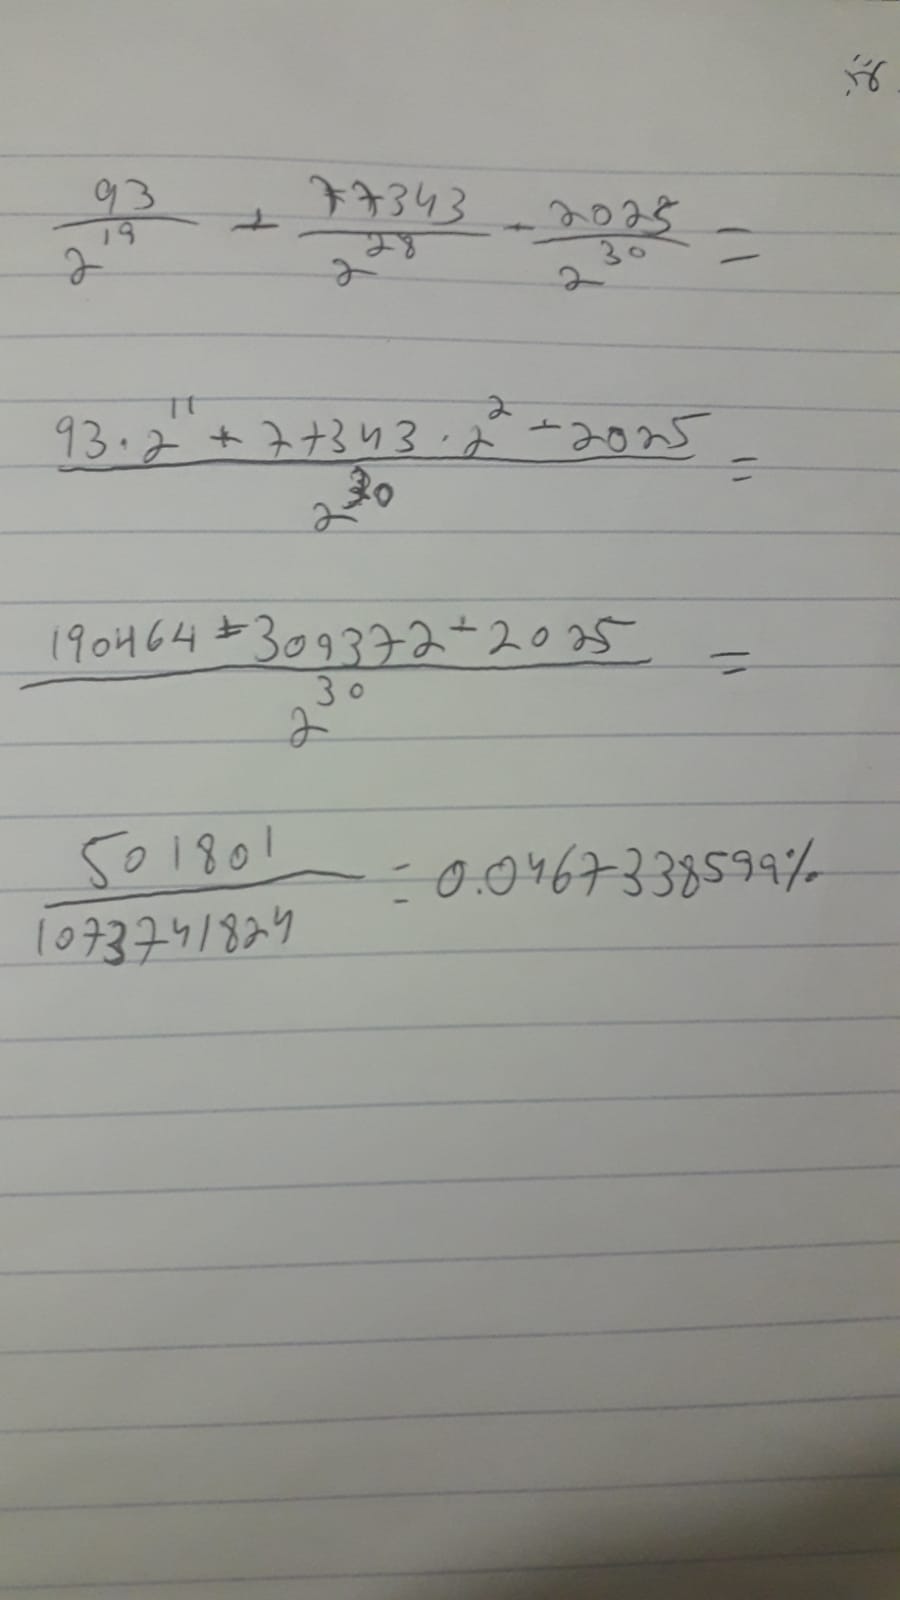 בייה
93/2^19 + 77343/2^28 + 2025/2^30 =
93·2^11 + 77343·2^2 + 2025 / 2^30 =
190464 + 309372 + 2025 / 2^30 =
501801/1073741824 = 0.0467338599%